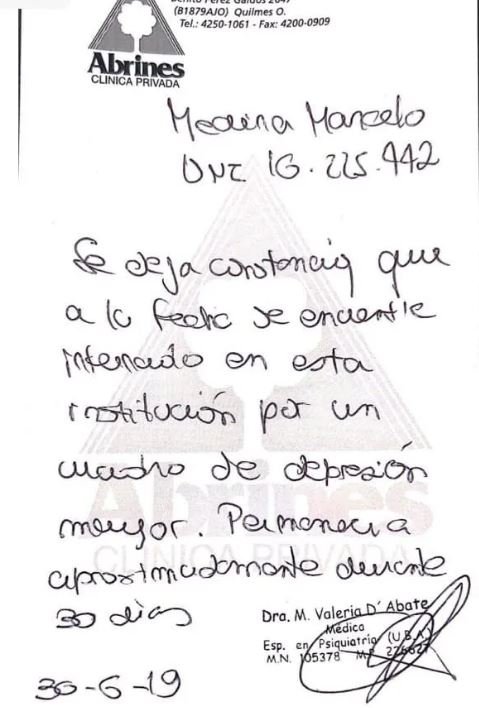 Benito Pérez Galdós 2047
(B1879AJO) Quilmes O.
Tel.: 4250-1061 - Fax: 4200-0909
Abrines
CLINICA PRIVADA
Medina Marcelo
DNI 16.225.442
Se deja constancia que
a la fecha se encuentra
internado en esta
institución por un
cuadro de depresión
mayor. Permanecia
aproximadamente durante
30 dias
30-6-19
Dra. M. Valeria D'Abate
Médica
Esp. en Psiquiatría (U.B.A)
M.N. 105378 M.P.
Abrines
CLINICA PRIVADA